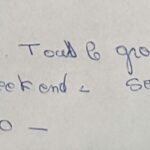 . Toul 6 gro
eekend - Se
o -